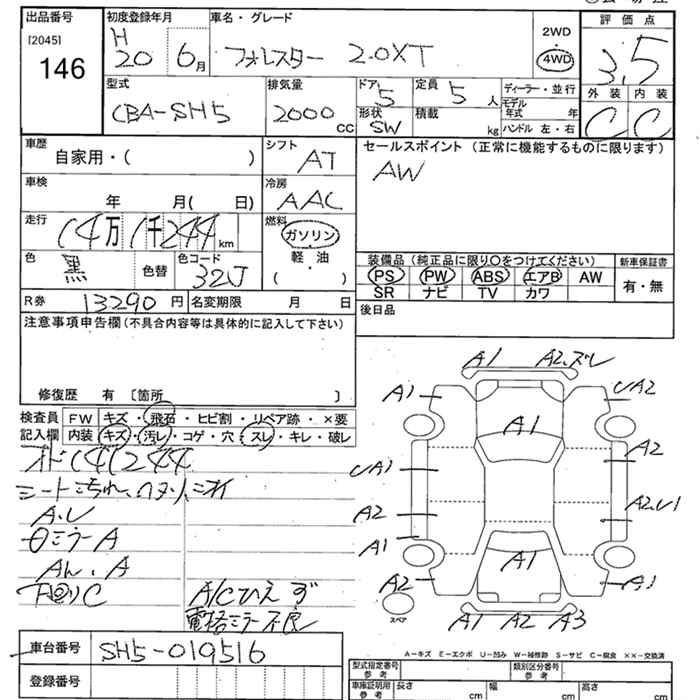 出品番号 初度登録年月 車名・グレード 2WD 評価点
[2045] 146 H 20 6月 フォレスター 2.0XT 4WD 3.5
型式 排気量 ドア 5 定員 5人 ディーラー・並行 外装 内装
CBA-SH5 2000cc 形状 SW 積載 kg モデル年式 年 C C
ハンドル 左・右
車歴 自家用・( ) シフト AT セールスポイント (正常に機能するものに限ります)
AW
車検 年 月( 日) 冷房 AAC
走行 14万1千244km 燃料 ガソリン
軽・油
( )
色 黒 色替 色コード 32J
装備品 (純正品に限り〇をつけてください) 新車保証書
PS PW ABS エアB AW 有・無
SR ナビ TV カワ
R券 13290円 名変期限 月 日 後日品
注意事項申告欄(不具合内容等は具体的に記入して下さい)
修復歴 有 〔箇所 〕
検査員 FW キズ・飛石・ヒビ割・リペア跡・×要
記入欄 内装 キズ・汚レ・コゲ・穴・スレ・キレ・破レ
オド 141244
シート汚れ、ヘタリ、ニオイ
A.U
Θミラー A
A
下回りC A/Cひえず
電格ミラー不良
A1 A2.ズレ
A1 UA2
A1
A2
UA1
A2 A2.U1
A1
A1
A2 A1
スペア
A1 A2 A3
A-キズ E-エクボ U-凹み W-補修跡 S-サビ C-腐食 ××-交換済
車台番号 SH5-019516
登録番号
型式指定番号 類別区分番号
車庫証明用 長さ cm 幅 cm 高さ cm
参考